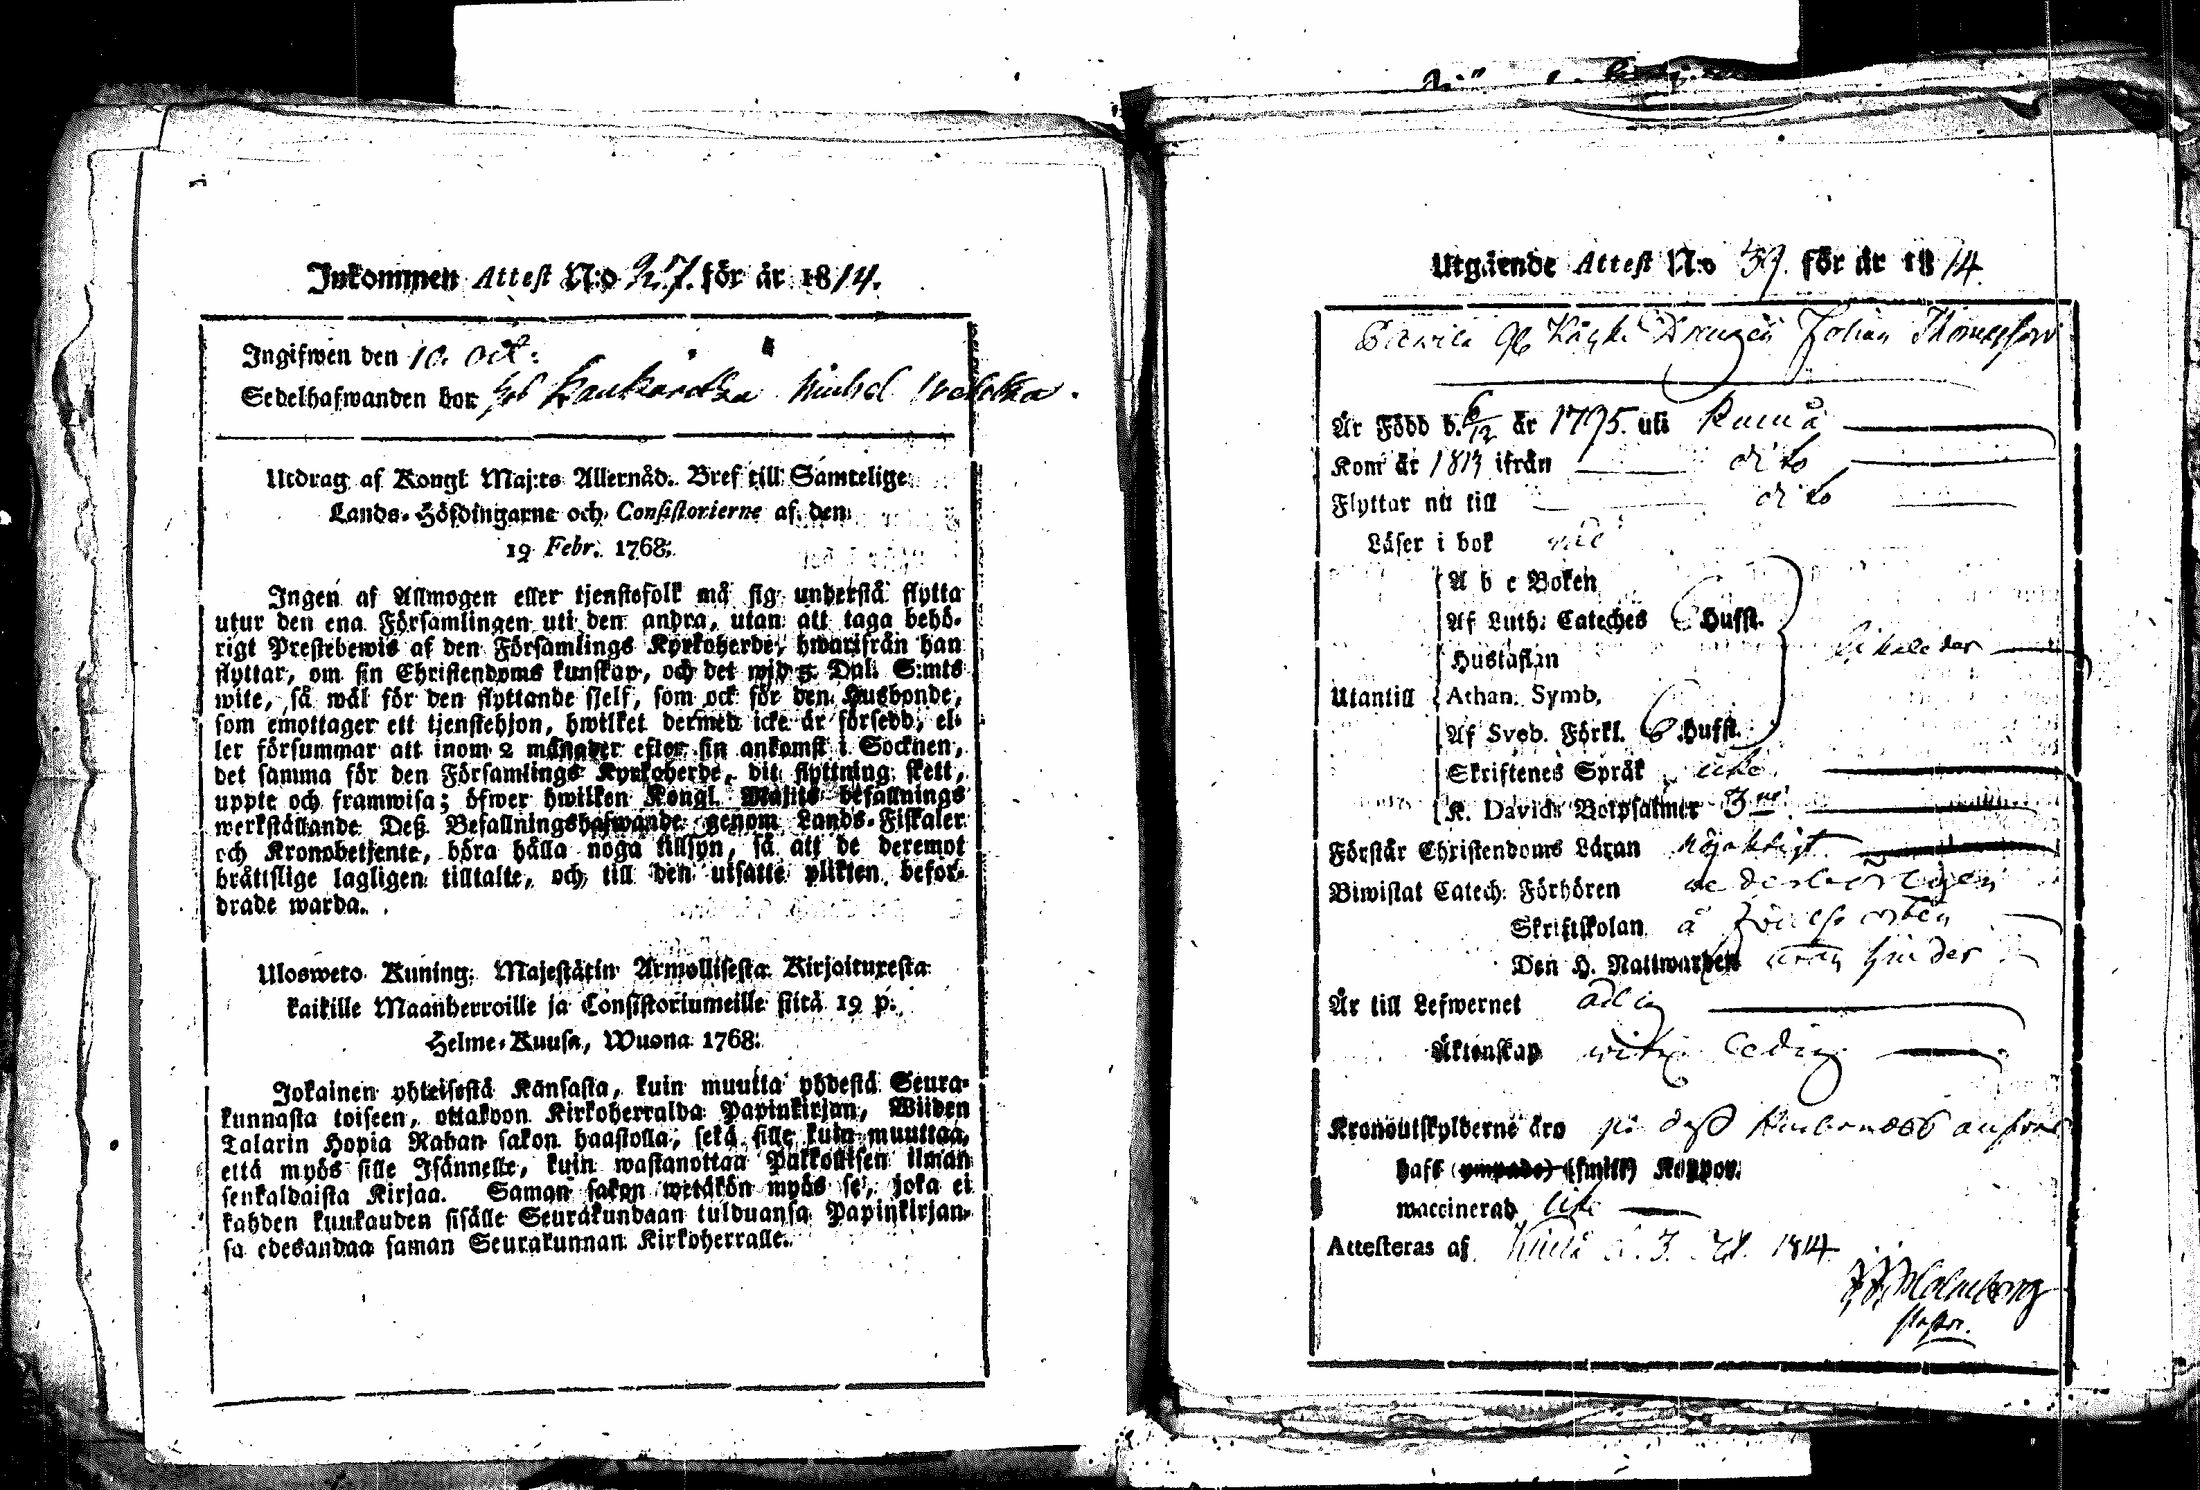 Inkommen Attest N:o 27. för år 1814.
Ingifwen den 10. Oct:
Sedelhafwanden bor hos
Utdrag af Kongl Maj:ts Allernåd. Bref till Samtelige
Lands-Höfdingarne och Consistorierne af den
19 Febr. 1768.
Ingen af Allmogen eller tjenstefolk må sig understå flytta
utur den ena Församlingen uti den andra, utan att taga behö-
rigt Prestebewis af den Församlings Kyrkoherde, hwarifrån han
flyttar, om sin Christendoms kunskap, och det wid 5 Dal. S:mts
wite, så wäl för den flyttande sjelf, som ock för den Husbonde,
som emottager ett tjenstehjon, hwilket dermed icke är försedd, el-
ler försummar att inom 2 månader efter sin ankomst i Socknen,
det samma för den Församlings Kyrkoherde, dit flyttning skett,
uppte och framwisa; öfwer hwilken Kongl. Maj:ts befallnings
werkställande Deß Befallningshafwande genom Lands-Fiskaler
och Kronobetjente, böra hålla noga tillsyn, så att de deremot
bråttslige lagligen tilltalte, och till den utsatte plikten befor-
drade warda.
Ulosweto Kuning. Majestätin Armollisesta Kirjoituxesta
kaikille Maanherroille ja Consistoriumeille siitä 19 p.
Helme-Kuusa, Wuona 1768.
Jokainen yhteisestä Kansasta, kuin muutta yhdestä Seura-
kunnasta toiseen, ottakoon Kirkoherralda Papinkirjan, Wiiden
Talarin Hopia Rahan sakon haastolla, sekä sille kuin muuttaa,
että myös sille Isännelle, kuin wastanottaa Palkollisen ilman
senkaldaista Kirjaa. Saman sakon wetäkön myös se, joka ei
kahden kuukauden sisälle Seurakundaan tulduansa Papinkirjan-
sa edesandaa saman Seurakunnan Kirkoherralle.
Utgående Attest N:o 59. för år 1814.
Drengen Johan Thomasson
Är Född d. 6/12 år 1795. uti
Kom år 1813 ifrån dito
Flyttar nu till dito
Läser i bok
A b c Boken
Af Luth. Cateches 6 Hufst.
Hustaflan
Utantill Athan. Symb.
Af Sveb. Förkl. 6 Hufst.
Skriftenes Språk
K. Davids Botpsalmer 3ne
Förstår Christendoms Läran nöjaktigt
Biwistat Catech. Förhören wederbörligen
Skriftskolan å
Den H. Nattwarden utan hinder
Är till Lefwernet ädlig
Äktenskap ledig
Kronoutskylderne äro på dess Husbondes answar
haft (ympade) (smitt) Koppor.
waccinerad
Attesteras af d. 3. 1814
Malmberg
Pastor.